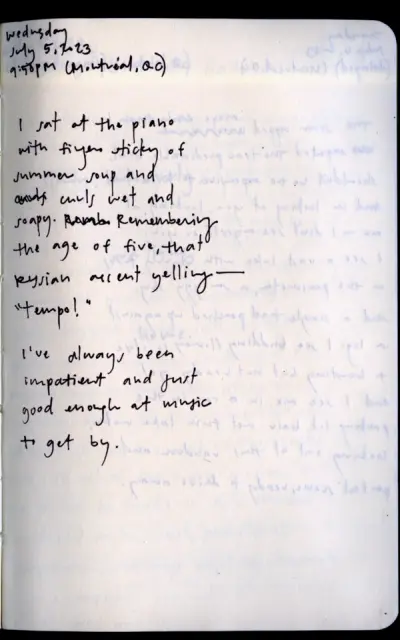 Wednesday
July 5, 2023
9:50pm (Montréal, QC)
I sat at the piano
with fingers sticky of
summer soup and
curls wet and
soapy. Remembering
the age of five, that
Russian accent yelling—
"Tempo!"
I've always been
impatient and just
good enough at music
to get by.